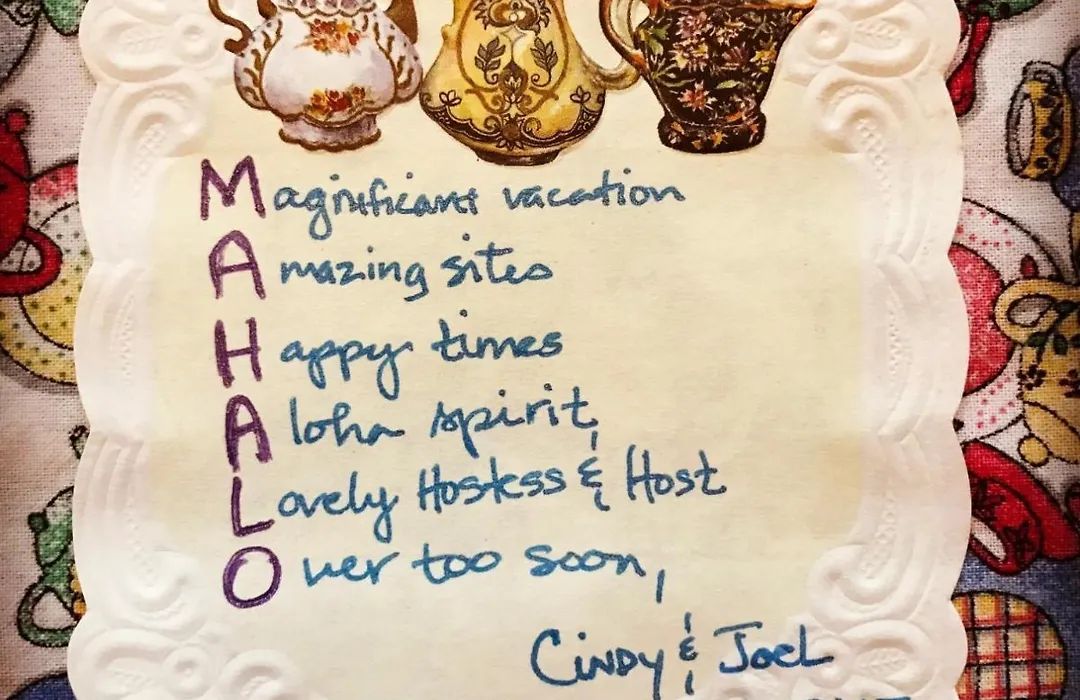 Magnificant vacation
Amazing sites
Happy times
Aloha spirit
Lovely Hostess & Host
Over too soon,
Cindy & Joel